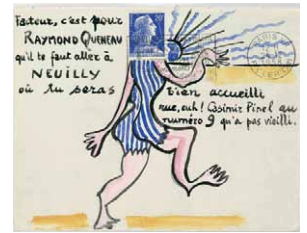 Facteur, c'est pour
RAYMOND QUENEAU
qu'il te faut aller à
NEUILLY
où tu seras
bien accueilli
rue, euh! Casimir Pinel au
numéro 9 qu'a pas vieilli.
PARIS